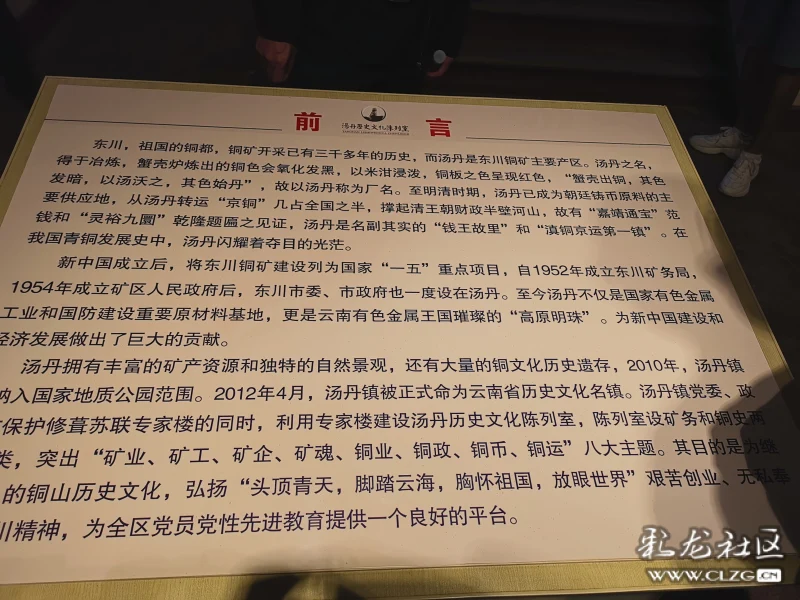 前 言
汤丹历史文化陈列室
东川，祖国的铜都，铜矿开采已有三千多年的历史，而汤丹是东川铜矿主要产区。汤丹之名，
得于冶炼，蟹壳炉炼出的铜色会氧化发黑，以米泔浸泼，铜板之色呈现红色，“蟹壳出铜，其色
发暗，以汤沃之，其色始丹”，故以汤丹称为厂名。至明清时期，汤丹已成为朝廷铸币原料的主
要供应地，从汤丹转运“京铜”几占全国之半，撑起清王朝财政半壁河山，故有“嘉靖通宝”范
钱和“灵裕九圜”乾隆题匾之见证，汤丹是名副其实的“钱王故里”和“滇铜京运第一镇”。在
我国青铜发展史中，汤丹闪耀着夺目的光茫。
新中国成立后，将东川铜矿建设列为国家“一五”重点项目，自1952年成立东川矿务局，
1954年成立矿区人民政府后，东川市委、市政府也一度设在汤丹。至今汤丹不仅是国家有色金属
工业和国防建设重要原材料基地，更是云南有色金属王国璀璨的“高原明珠”。为新中国建设和
经济发展做出了巨大的贡献。
汤丹拥有丰富的矿产资源和独特的自然景观，还有大量的铜文化历史遗存，2010年，汤丹镇
纳入国家地质公园范围。2012年4月，汤丹镇被正式命为云南省历史文化名镇。汤丹镇党委、政
保护修葺苏联专家楼的同时，利用专家楼建设汤丹历史文化陈列室，陈列室设矿务和铜史两
类，突出“矿业、矿工、矿企、矿魂、铜业、铜政、铜币、铜运”八大主题。其目的是为继
的铜山历史文化，弘扬“头顶青天，脚踏云海，胸怀祖国，放眼世界”艰苦创业、无私奉
川精神，为全区党员党性先进教育提供一个良好的平台。
彩龙社区
WWW.CLZG.CN